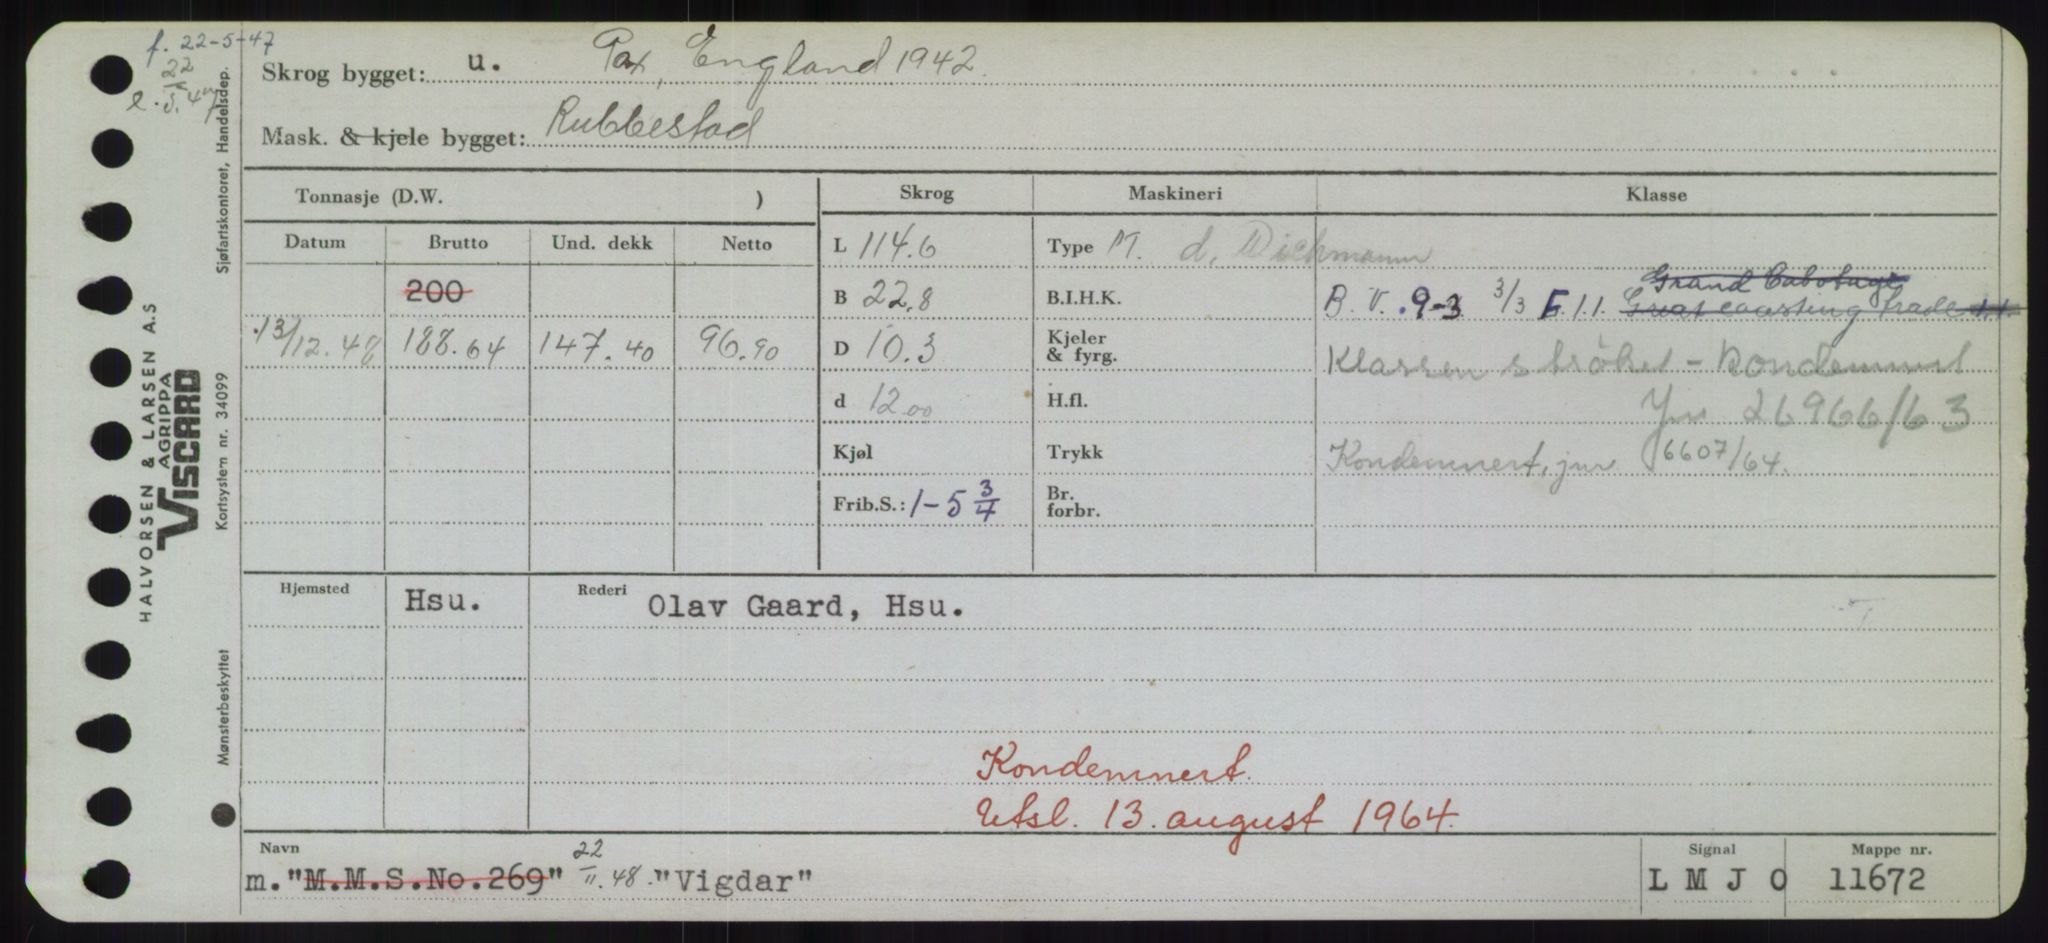 f. 22-5-47
22
5. 47
Skrog bygget: u. Pax, England 1942
Mask. & kjele bygget: Rubbestad
Tonnasje (D.W. )
Skrog
Maskineri
Klasse
Datum
Brutto
Und. dekk
Netto
200
13/12.48 188.64 147.40 96.90
L 114.6
B 22.8
D 10.3
d 12.00
Kjøl
Frib.S.: 1-5 3/4
Type M. d. Dickmann
B.I.H.K.
Kjeler & fyrg.
H.fl.
Trykk
Br. forbr.
Grand Cabotage
B. V. .9-3 3/3 F. 1.1. Great coasting trade
Klassen strøket - Kondemnert
Jnr 26966/63
Kondemnert, jnr 6607/64.
Hjemsted
Hsu.
Rederi
Olav Gaard, Hsu.
Kondemnert.
Utsl. 13. august 1964.
Navn
m. "M.M.S.No.269" 22/11.48. "Vigdar"
Signal
L M J O
Mappe nr.
11672
HALVORSEN & LARSEN A.S
AGRIPPA
VISCARD
Sjøfartskontoret, Handelsdep.
Kortsystem nr. 34099
Mønsterbeskyttet